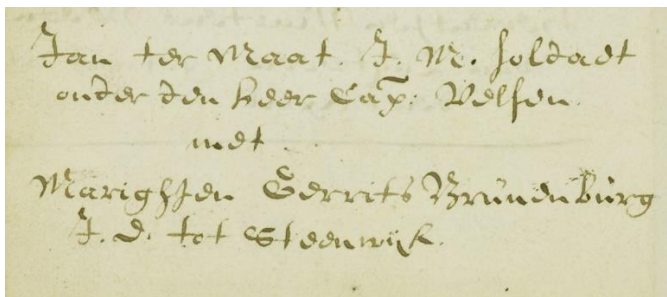 Jan ter Maat. J. M. soldaet
onder den heer Cap: Velsen.
met
Marighjen Gerrits Brunenburg
J. D. tot Steenwijk.